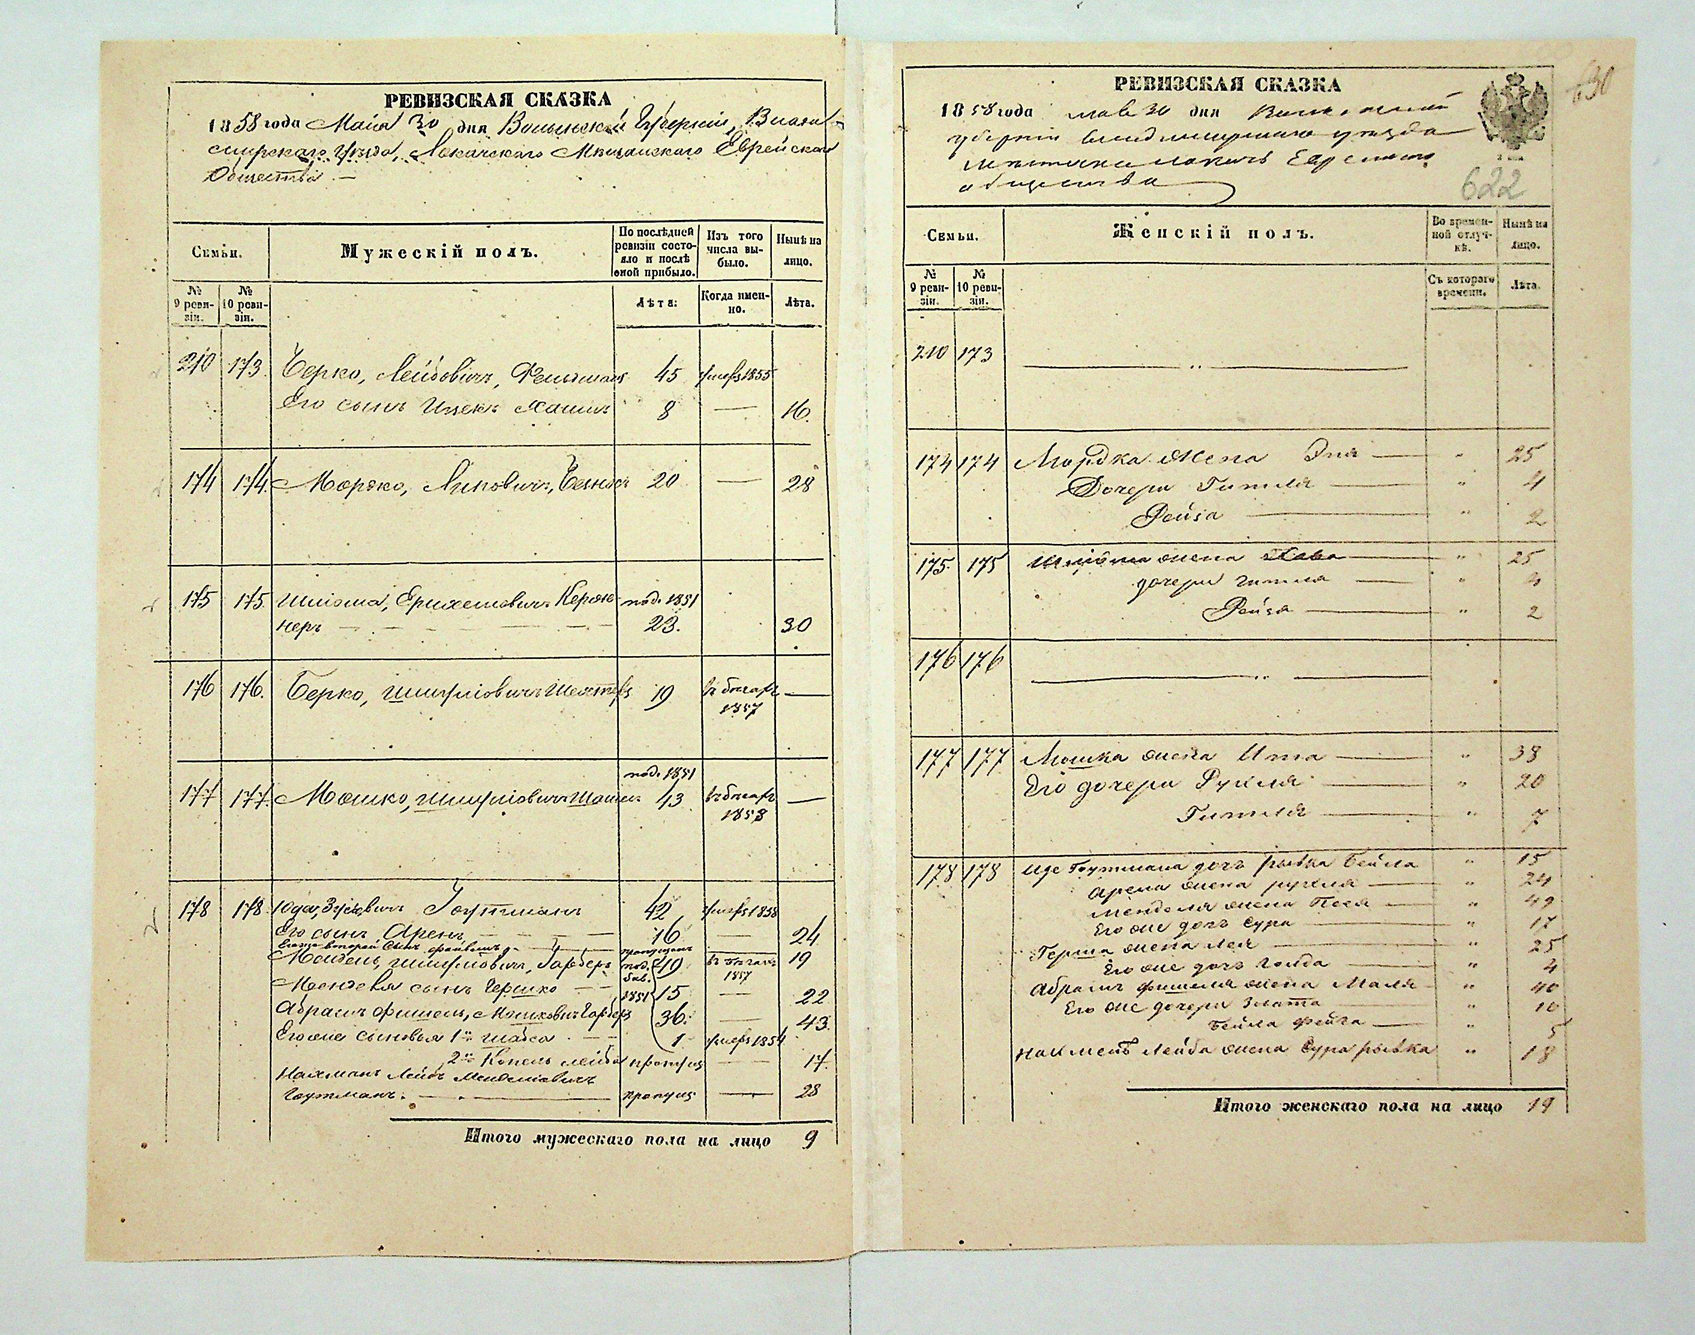 РЕВИЗСКАЯ СКАЗКА
1858 года Мая 30 дня Волынской Губернии, Влади-
мирского Уѣзда, Локачскаго Мѣщанскаго Еврейскаго
Общества. —
Семьи.
Мужескій полъ.
По послѣдней ревизіи состояло и послѣ оной прибыло.
Изъ того числа выбыло.
Нынѣ на лицо.
№ 9 ревизіи.
№ 10 ревизіи.
Лѣта.
Когда именно.
Лѣта.
210 173 Берко, Лейбовичъ, 45 умеръ 1855
Его сынъ Ицекъ Хаимъ 8 — 16.
174 174. Мордко, 20 — 28
175 175. Шліома, под. 1851
неръ 23. 30
176 176. Берко, Шмуліовичъ 19 въ бѣгахъ —
1857
под. 1851
177 177. Мошко, Шмуліовичъ 43 въ бѣгахъ —
1858
178 178 Юда, Гоутманъ 42 умеръ 1858
Его сынъ Аренъ 16 — 24
второй сынъ пропущенъ
Мендель, Шмуліовичъ, Гарберъ под. 49 въ бѣгахъ 19
1857
Менделя сынъ Гершко 1851 15 — 22
Абрамъ Фишель, Мошковичъ Гарберъ 36. — 43.
Его же сыновья 1й 1. умеръ 1854
2й Копель Лейба пропущ — 17.
Нахманъ Лейбъ Менделіовичъ
Гоутманъ. пропущ — 28
Итого мужескаго пола на лицо 9
РЕВИЗСКАЯ СКАЗКА
630
1858 года мая 30 дня Волынской
губерніи Владимирскаго уѣзда
Еврейскаго
общества
622
Семьи.
Женскій полъ.
Во временной отлучкѣ.
Нынѣ на лицо.
№ 9 ревизіи.
№ 10 ревизіи.
Съ котораго времени.
Лѣта.
210 173 — „ —
174 174 Мордка жена Эня — „ 25
Дочери Гитля — „ 4
Рейза — „ 2
175. 175 жена Хава — „ 25
дочери Гитля — „ 4
Рейза — „ 2
176 176 — „ —
177 177 Мошка жена Ита — „ 38
Его дочери Рухля — „ 20
Гитля — „ 7
178 178 Гоутмана дочь Рывка Бейла „ 15
Арена жена Рухля — „ 24
Менделя жена Песя — „ 49
Его же дочь Сура — „ 17
Герша жена Лея — „ 25
Его же дочь — „ 4
Абрамъ Фишеля жена Маля — „ 40
Его же дочери Злата „ 10
Бейла Фейга — „ 5
Нахменъ Лейба жена Сура Рывка „ 18
Итого женскаго пола на лицо 19